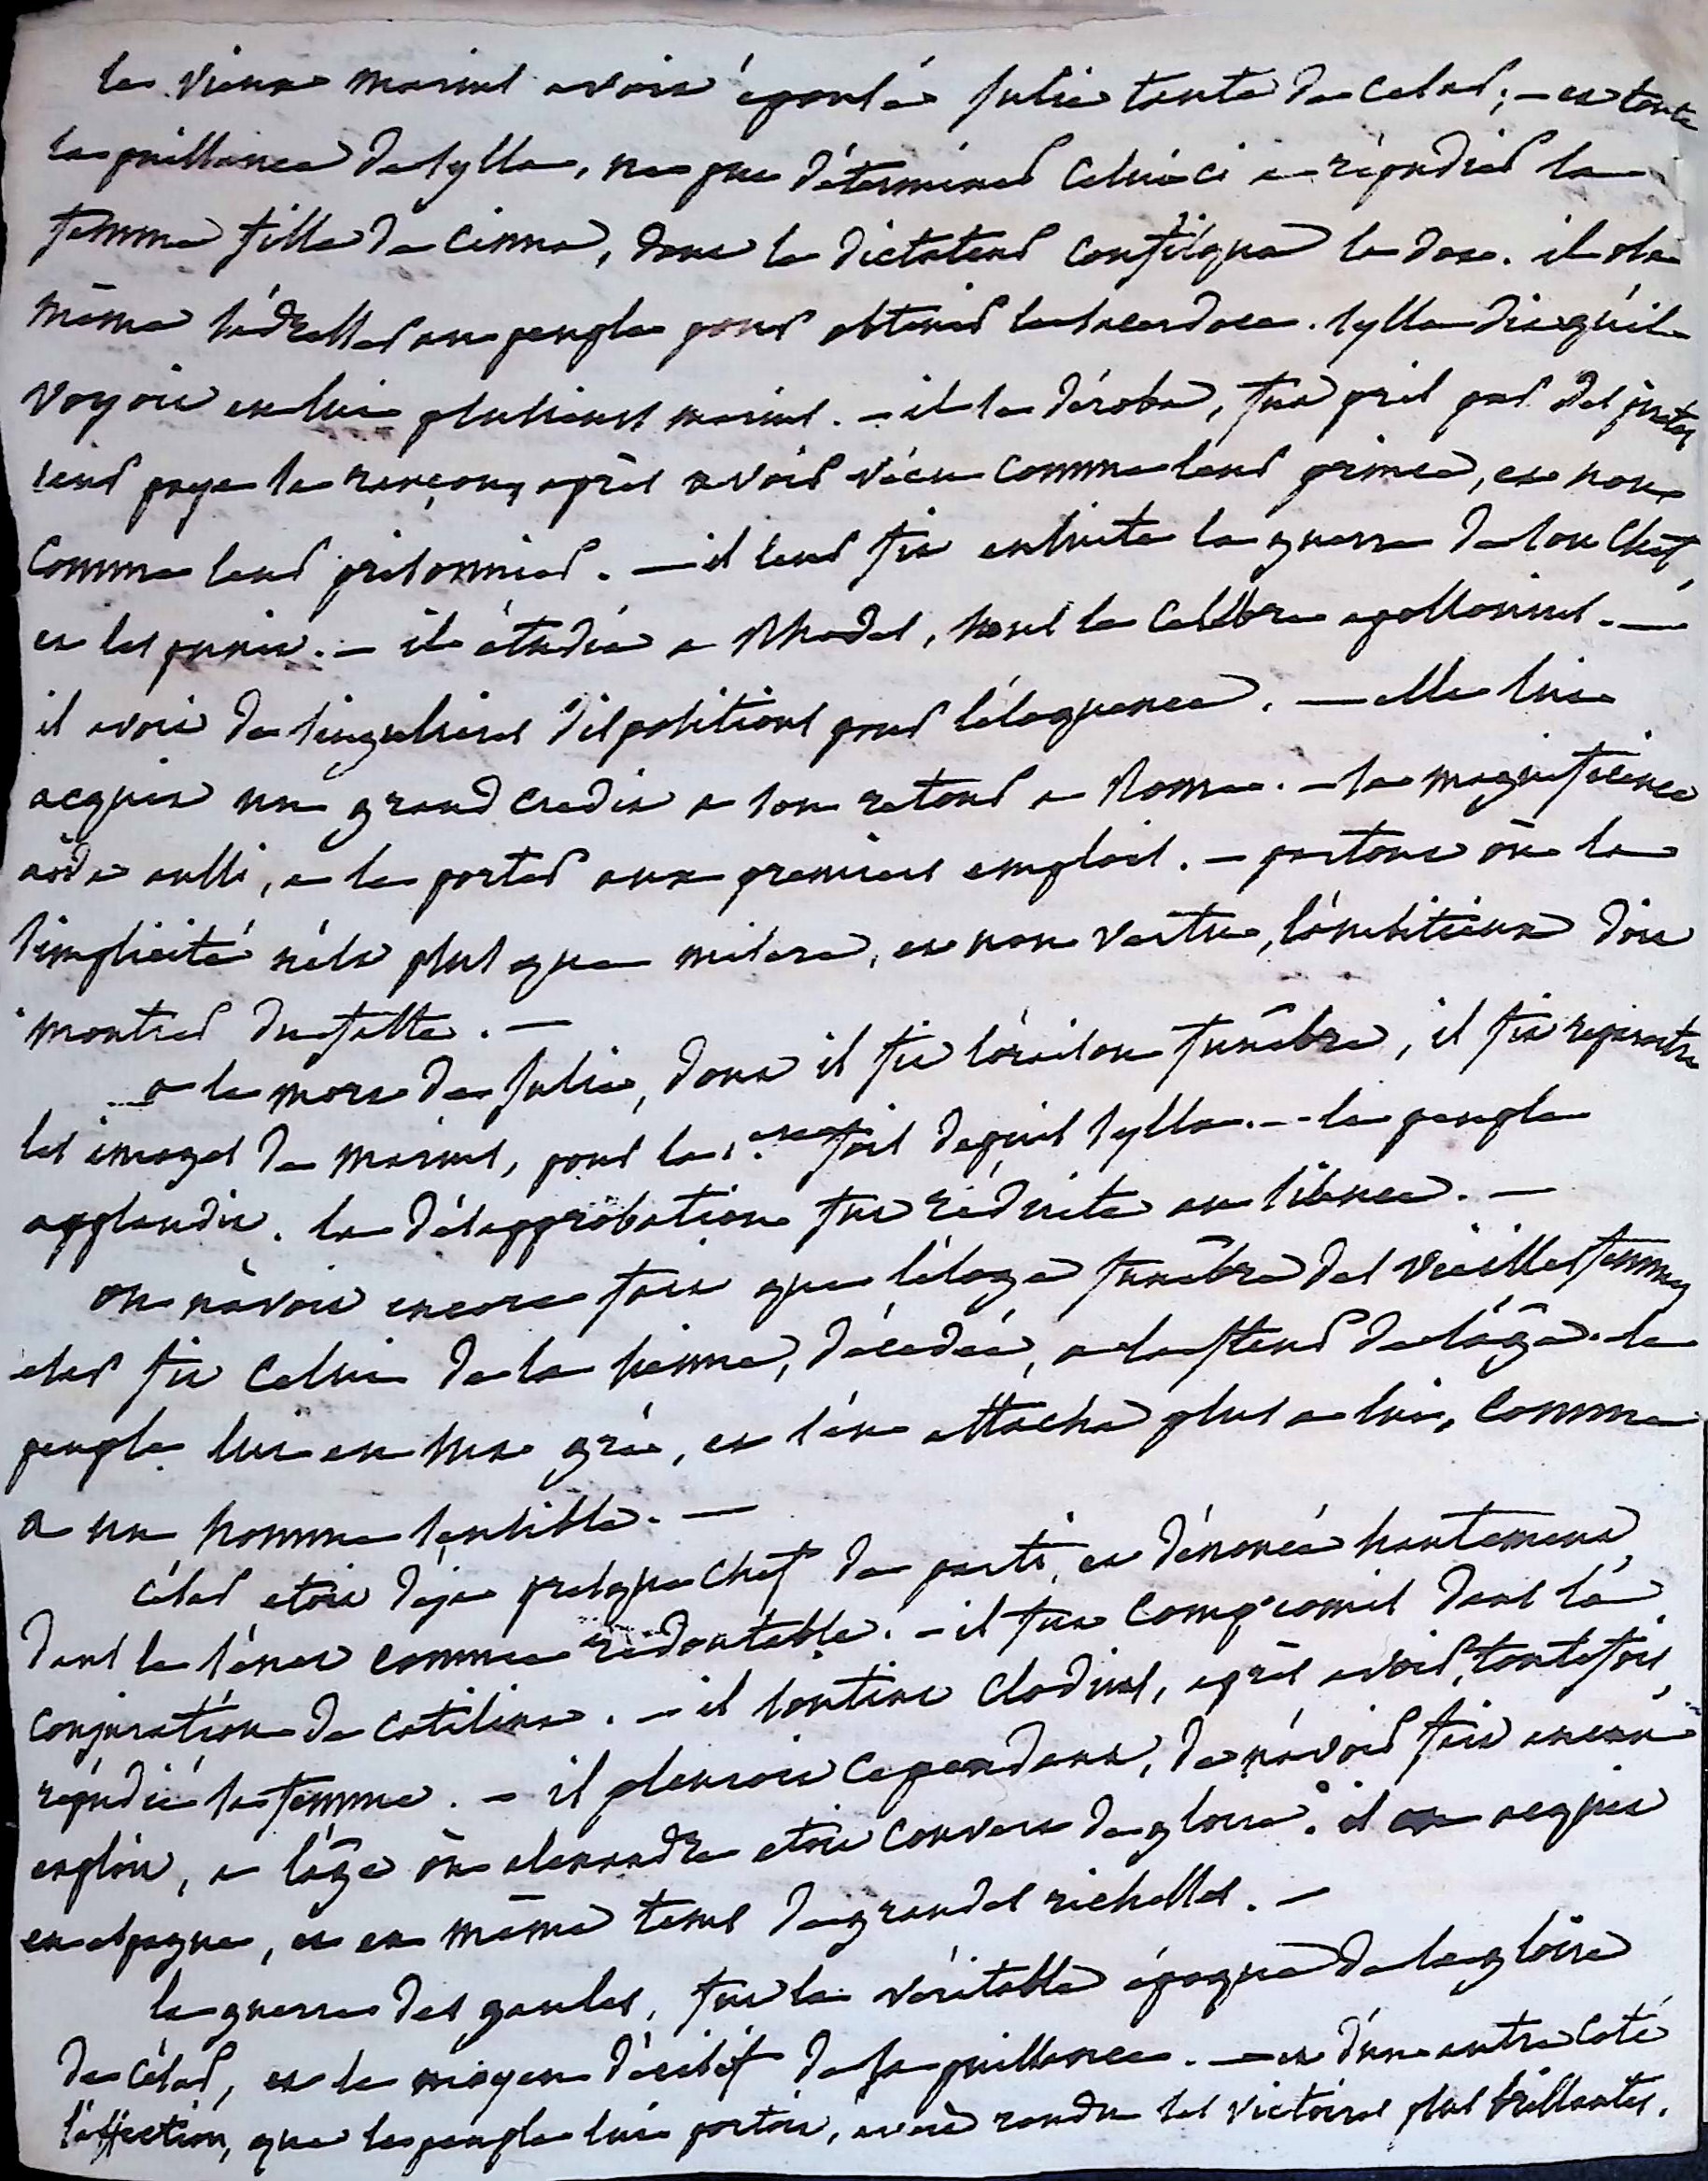 le vieux marius avoit épousé Julie tante de cesar; – et toute
la puissance de Sylla, ne put déterminer celui ci a répudier sa
femme fille de cinna, dont le dictateur confisqua la dot. il osa
même s'adresser au peuple pour obtenir le sacerdoce. Sylla dit qu'il
voyoit en lui plusieurs marius. – il se déroba, fut pris par des pirates
leur paya sa rançon, après avoir vécu comme leur prince, et non
comme leur prisonnier. – il leur fit ensuite la guerre de son chef,
et les punit. – il étudia a Rhodes, sous le celebre apollonius. –
il avoit de singulieres dispositions pour l'éloquence. – elle lui
acquit un grand credit a son retour a Rome. – sa magnificence
aida aussi, a le porter aux premiers emplois. – partout où la
simplicité n'est plus que misere, et non vertu, l'ambitieux doit
montrer du faste. –
a la mort de Julie, dont il fit l'oraison funèbre, il fit reparoitre
les images de marius, pour la 1.ere fois depuis Sylla. – le peuple
applaudit. la désapprobation fut réduite au silence. –
on n'avoit encore fait que l'éloge funèbre des vieilles femmes
cesar fit celui de la sienne, décédée, a la fleur de l'âge. le
peuple lui en sut gré, et s'en attacha plus a lui, comme
a un homme sensible. –
césar etoit deja presque chef de parti, et dénoncé hautement,
dans le sénat comme redoutable. – il fut compromis dans la
conjuration de catilina. – il soutint Clodius, après avoir, toutefois,
répudié sa femme. – il pleuroit cependant, de n'avoir fait aucun
exploit, a l'âge où alexandre etoit couvert de gloire. il en acquit
en espagne, et en même tems de grandes richesses. –
la guerre des gaules, fut la véritable époque de la gloire
de césar, et le moyen décisif de sa puissance. – et d'un autre coté
l'affection, que le peuple lui portoit, avoit rendu ses victoires plus brillantes.